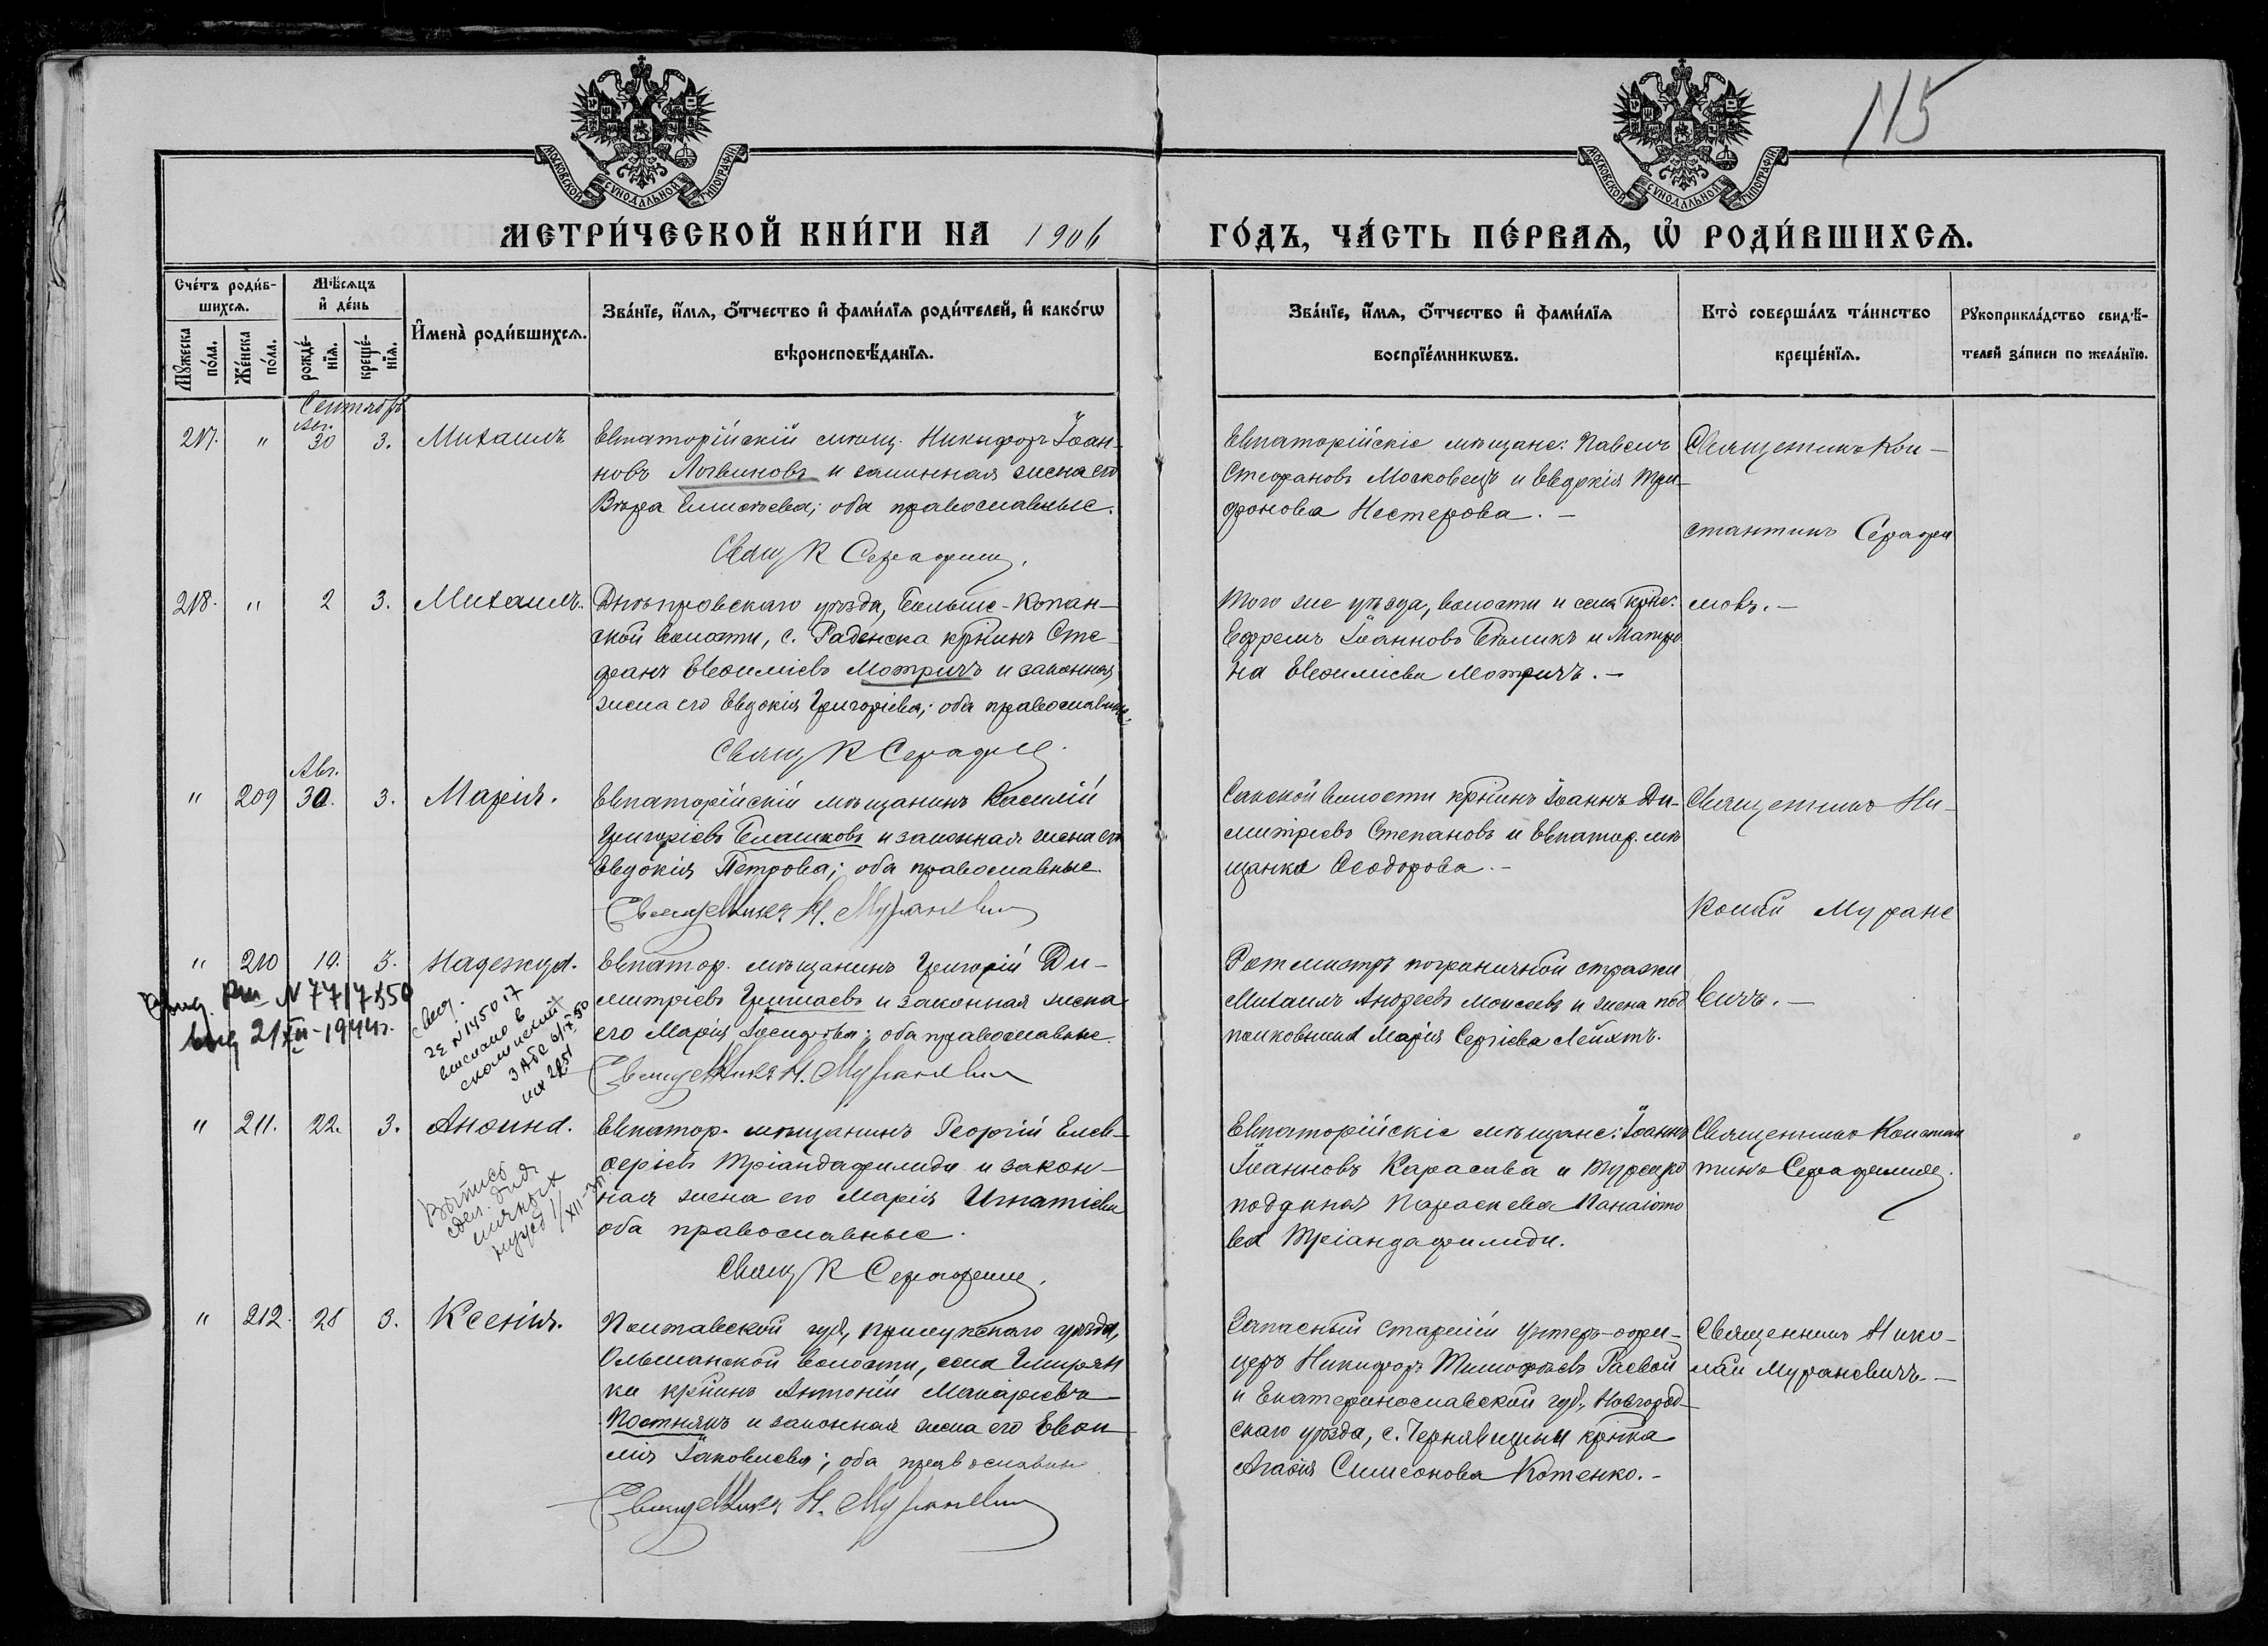 115
МОСКОВСКОЙ СѴНОДАЛЬНОЙ ТИПОГРАФІИ
МОСКОВСКОЙ СѴНОДАЛЬНОЙ ТИПОГРАФІИ
МЕТРИ́ЧЕСКОЙ КНИ́ГИ НА 1906 ГО́ДЪ, ЧА́СТЬ ПЕ́РВАѦ, Ѽ РОДИ́ВШИХСѦ.
Сче́тъ роди́в-
шихсѧ.
Мꙋжеска по́ла.
Же́нска по́ла.
Мѣ́сѧцъ
и҆ де́нь
рожде́-нїѧ.
креще́-нїѧ.
И҆мена̀ роди́вшихсѧ.
Зва́нїе, и҆́мѧ, ѻ҆́тчество и҆ фами́лїѧ роди́телей, и҆ како́гѡ
вѣроисповѣ́данїѧ.
Зва́нїе, и҆́мѧ, ѻ҆́тчество и҆ фами́лїѧ
воспрїе́мникѡвъ.
Кто̀ соверша́лъ та́инство
креще́нїѧ.
Рꙋкоприкла́дство свидѣ́-
телей за́писи по жела́нїю.
Сентябрь
Авг.
217. " 30 3. Михаилъ
Евпаторійскій мѣщ. Никифоръ Іоан-
новъ Логвиновъ и законная жена его
Вѣра Елисѣева; оба православные.
Свящ К Серафим.
Евпаторійскіе мѣщане: Павелъ
Стефановъ Московецъ и Евдокія Три-
фонова Нестерова. –
Священникъ Кон-
стантинъ Серафи
мовъ. –
218. " 2 3. Михаилъ.
Днѣпровскаго уѣзда, Больше-Копан-
ской волости, с. Раденска крнинъ Сте-
фанъ Евѳиміевъ Мотричъ и законная
жена его Евдокія Григорієва; оба православны.
Свящ К Серафим.
Того же уѣзда, волости и села крне:
Ефремъ Іоанновъ Бѣликъ и Матро
на Евѳиміева Мотричъ. –
Авг.
" 209 30. 3. Марія.
Евпаторійскій мѣщанинъ Василій
Григоріевъ Блашковъ и законная жена его
Евдокія Петрова; оба православные.
Священникъ Н. Мураневич
Сакской волости крнинъ Іоаннъ Ди-
митріевъ Степановъ и Евпатор. мѣ
щанка Ѳеодорова. –
Священникъ Ни-
колай Муране
вичъ. –
" 210 19. 3. Надежда.
Евпатор. мѣщанинъ Григорій Ди-
митріевъ Гришаевъ и законная жена
его Марія Іосифова; оба православные.
Священникъ Н. Мураневич
Ротмистръ пограничной стражи
Михаилъ Андреевъ Моисеевъ и жена под
полковника Марія Сергіева Лейхтъ.
N 7717850
выд 21 XII-1944г.
" 211. 22. 3. Анѳина.
Евпатор. мѣщанинъ Георгій Елев-
ѳеріевъ Тріандафилиди и закон-
ная жена его Марія Игнатіева
оба православные.
Свящ К Серафим.
Евпаторійскіе мѣщане: Іоаннъ
Іоанновъ Карасава и Турецко
подданая Параскева Панаіото
ва Тріандафилиди.
Священникъ Констан
тинъ Серафимов.
" 212. 28 3. Ксенія.
Полтавской губ, Прилукскаго уѣзда,
Ольшанской волости, села
ки крнинъ Антоній Макаріевъ
Постнякъ и законная жена его Евѳи
мія Іаковлева; оба православн
Священникъ Н. Мураневич
Запасный старшій унтеръ-офи-
церъ Никифоръ Тимофѣевъ Раевой
и Екатеринославской губ., Новгород-
скаго уѣзда, с. Чернявщины крнка
Агаѳія Симеонова Котенко. –
Священникъ Нико-
лай Мураневичъ. –